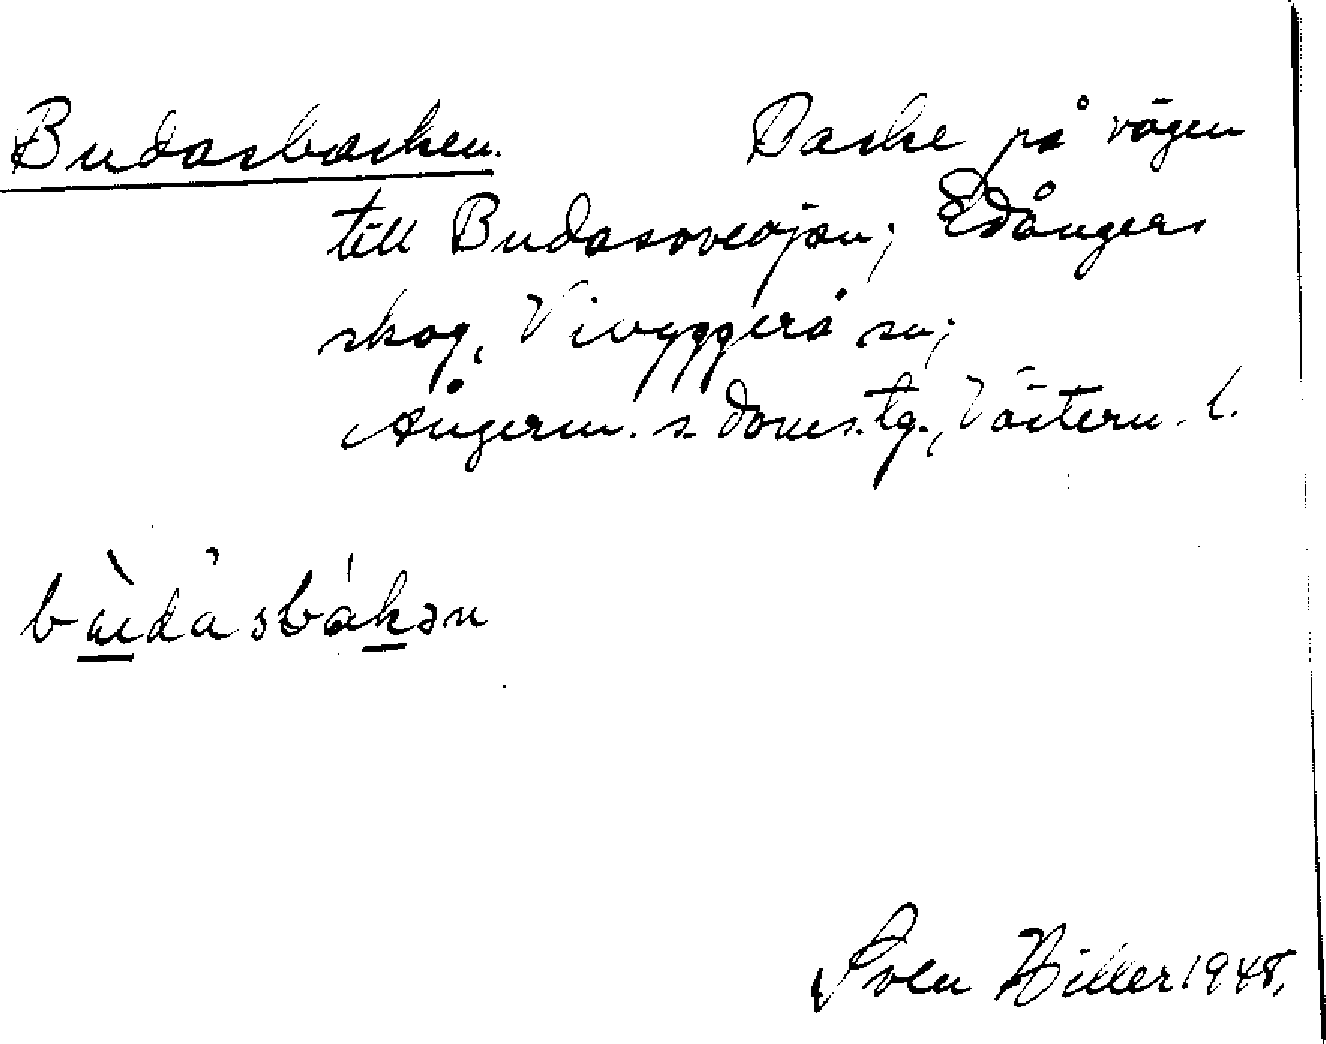 Budasbacken. Backe på vägen
till Budassvedjan; Edångers
skog, Vivyggerå sn;
Ångerm. s. doms.tg., Västern. l.
bùdàsbákən
Sven Hiller 1948.